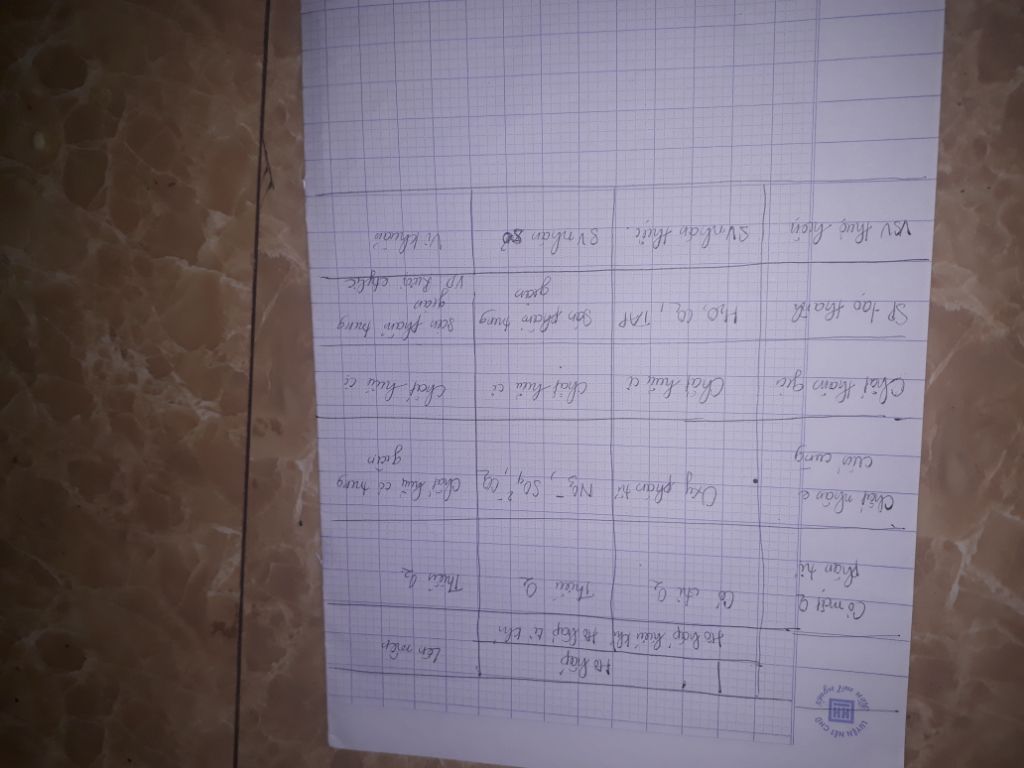 LUYỆN NÉT CHỮ
RÈN NẾT NGƯỜI
Hô hấp
Lên men
Hô hấp hiếu khí
Hô hấp kị khí
Có mặt O2
phân tử
Có đủ O2
Thiếu O2
Thiếu O2
Chất nhận e
cuối cùng
Oxy phân tử
NO3-, SO4 2-, CO2
Chất hữu cơ trung
gian
Chất tham gia
Chất hữu cơ
Chất hữu cơ
Chất hữu cơ
SP tạo thành
H2O, CO2, TAP
Sản phẩm trung
gian
Sản phẩm trung
gian
VSV thực hiện
SV nhân thực.
SV nhân sơ
Vi khuẩn